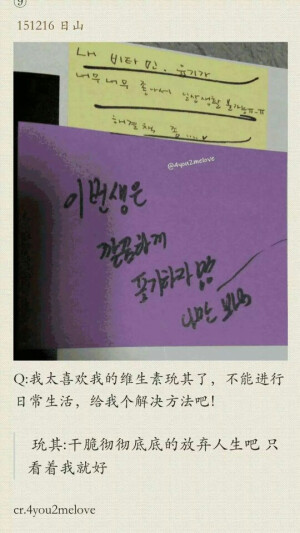 ⑨
151216 日山
내 비타민. 육기가
너무너무 좋아서 일상생활 불가능ㅠ.ㅠ
해결책 좀....♥
@4you2melove
이번생은
깔끔하게
포기하라며
나만 봐요
Q:我太喜欢我的维生素玩其了，不能进行
日常生活，给我个解决方法吧!
玩其:干脆彻彻底底的放弃人生吧 只
看着我就好
cr.4you2melove